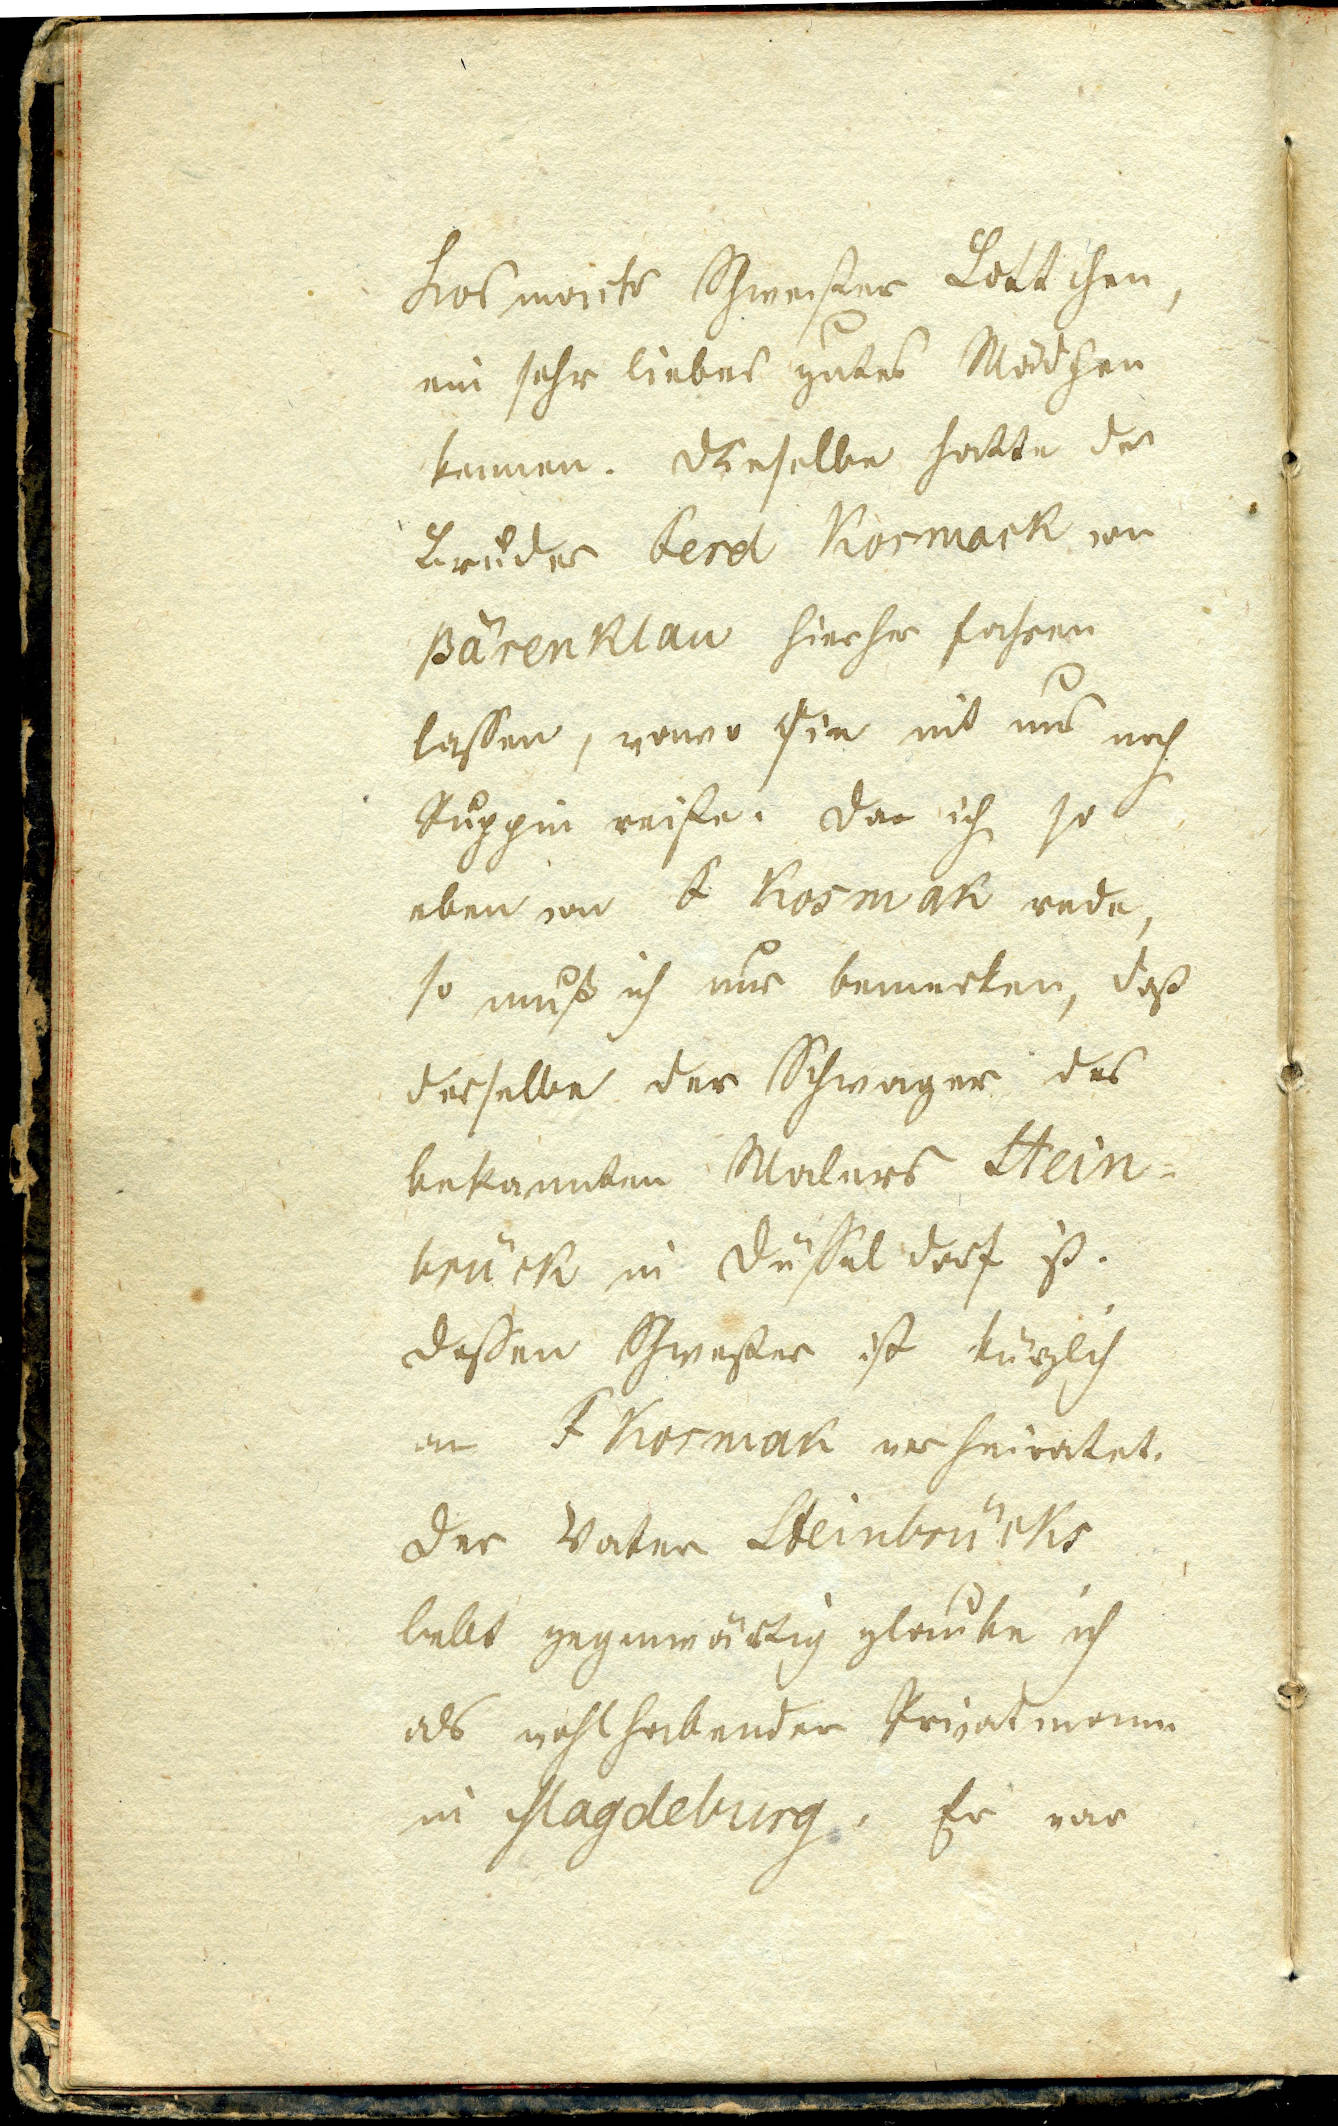 Kosmacks Schwester Lottchen,
ein sehr liebes gutes Mädchen
kennen. Dieselbe hatte der
Bruder Ferd Kosmack von
Bärenklau hierher fahren
lassen, von wo sie mit uns nach
Ruppin reiste. Da ich so
eben von F Kosmak rede,
so muß ich nur bemerken, daß
derselbe der Schwager des
bekannten Malers Stein-
brück in Düsseldorf ist.
Dessen Schwester ist kürzlich
an F Kosmak verheiratet.
Der Vater Steinbrücks
lebt gegenwärtig glaube ich
als wohlhabender Privatmann
in Magdeburg. Er war